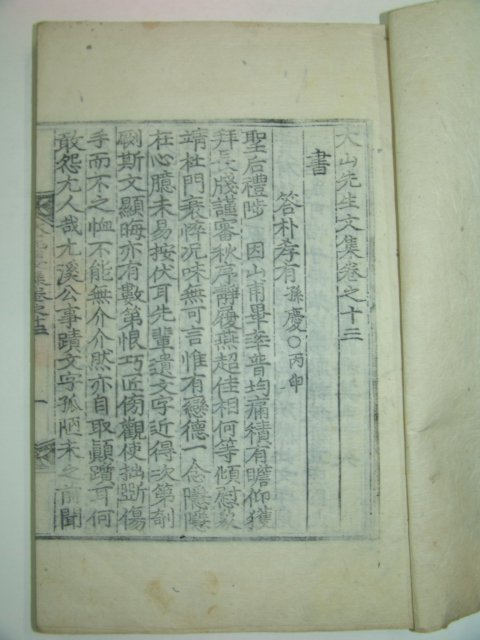 大山先生文集卷之十三
書
答朴孝有 孫慶○丙申
聖后禮陟 因山甫畢率普均痛積有瞻仰獲
拜長牋謹審秋序靜履燕超佳相何等傾慰
靖杜門衰悴况味無可言惟有戀德一念隱隱
在心臆未易按伏耳先輩遺文字近得次第剞
劂斯文顯晦亦有數第恨巧匠傍觀使拙斲傷
手而不之恤不能無介介然亦自取顚躓耳何
敢怨尤人哉尤溪公事蹟文字孤陋未之前聞